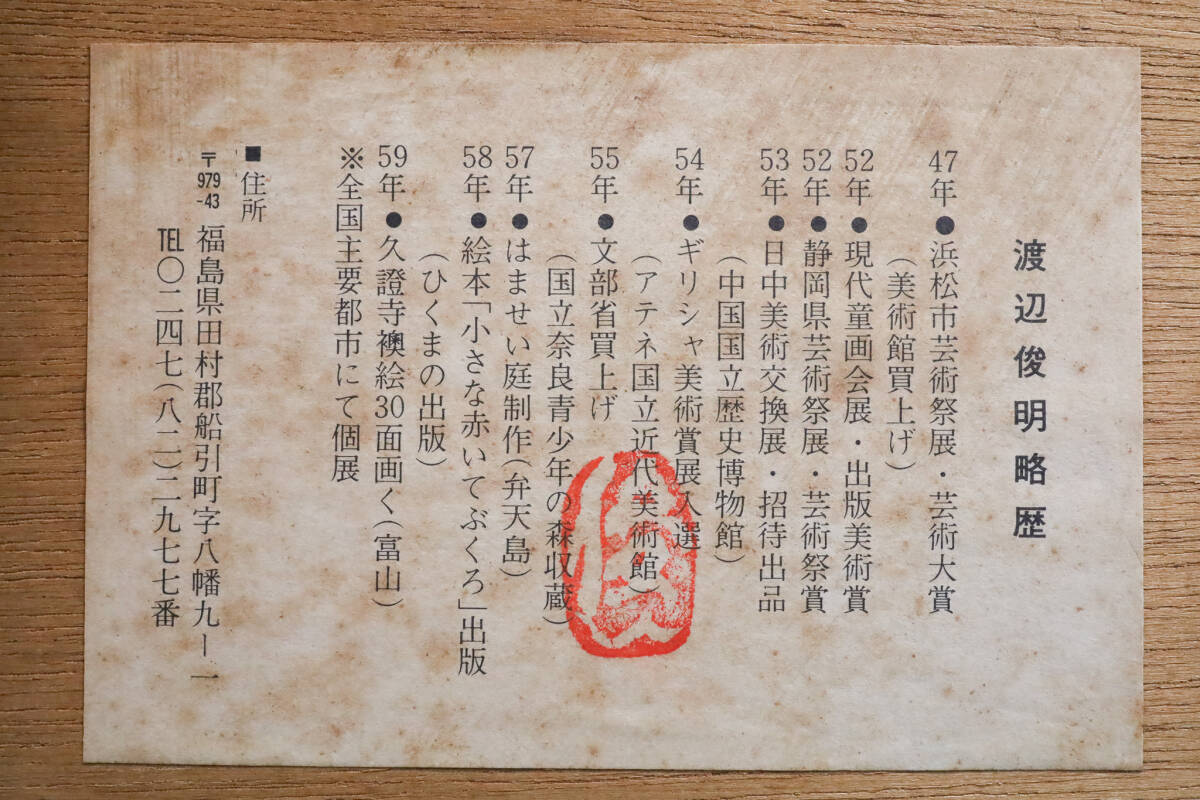 渡辺俊明略歴
47年●浜松市芸術祭展・芸術大賞
(美術館買上げ)
52年●現代童画会展・出版美術賞
52年●静岡県芸術祭展・芸術祭賞
53年●日中美術交換展・招待出品
(中国国立歴史博物館)
54年●ギリシャ美術賞展入選
(アテネ国立近代美術館)
55年●文部省買上げ
(国立奈良青少年の森収蔵)
57年●はませい庭制作(弁天島)
58年●絵本「小さな赤いてぶくろ」出版
(ひくまの出版)
59年●久證寺襖絵30面画く(富山)
※全国主要都市にて個展
■住所
〒979-43 福島県田村郡船引町字八幡九ー一
TEL〇二四七(八二)二九七七番